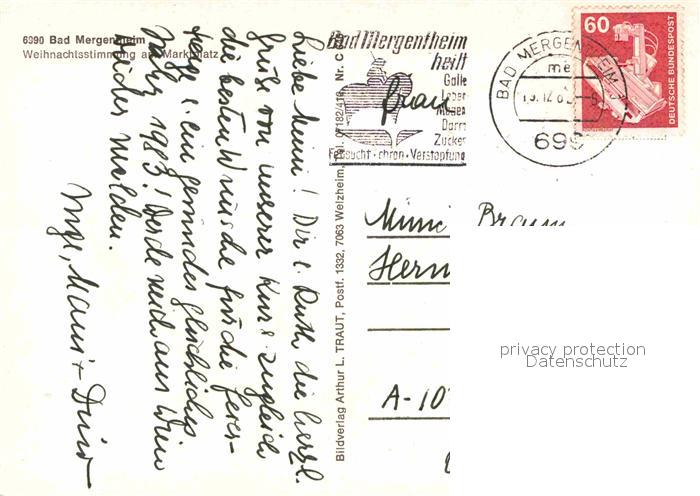 6990 Bad Mergentheim
Weihnachtsstimmung am Marktplatz
Liebe Minni! Dir u. Ruth die herzl.
Grüße von unserer Kur u. zugleich
die besten Wünsche für die Feier-
tage u. ein gesundes glückliches
1983! Werde mich aus Wien
wieder melden.
Inge,
Bildverlag Arthur L. TRAUT, Postf. 1332, 7063 Welzheim, Tel. 07182/416 Nr. C
Bad Mergentheim
heilt
Galle
Leber
Magen
Darm
Zucker
Fettsucht · chron. Verstopfung
Frau
BAD MERGENTHEIM
me
699
60
DEUTSCHE BUNDESPOST
Braun
A-10
privacy protection
Datenschutz